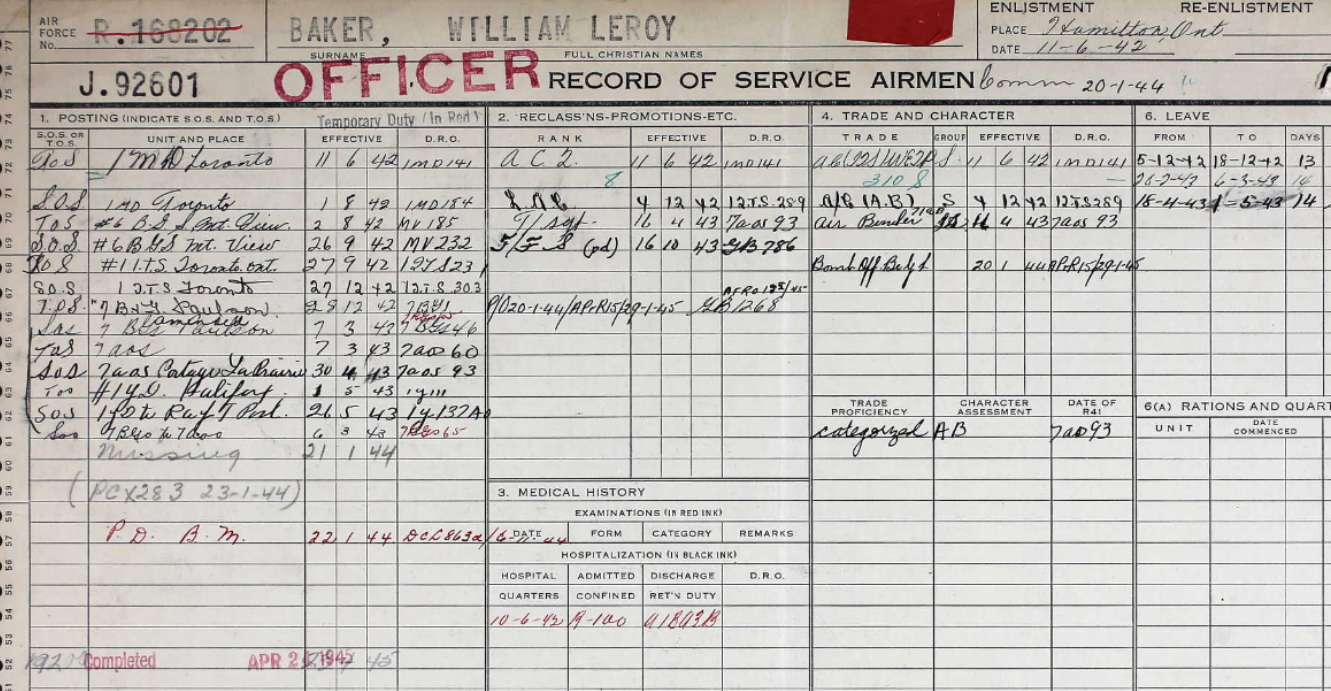 AIR FORCE No. R.168202
BAKER, WILLIAM LEROY
SURNAME FULL CHRISTIAN NAMES
ENLISTMENT RE-ENLISTMENT
PLACE Hamilton, Ont
DATE 11-6-42
J.92601
OFFICER
RECORD OF SERVICE AIRMEN Comm 20-1-44
1. POSTING (INDICATE S.O.S. AND T.O.S.) Temporary Duty (In Red)
S.O.S. OR T.O.S. UNIT AND PLACE EFFECTIVE D.R.O.
TOS 1 MD Toronto 11 6 42 1MD141
S.O.S 1 MD Toronto 1 8 42 1MD184
TOS #6 B.G.S Mt. View. 2 8 42 MV185
S.O.S. #6 BGS Mt. View 26 9 42 MV232
TOS #1 I.T.S. Toronto. Ont. 27 9 42
S.O.S 1 I.T.S Toronto 27 12 42 1I.T.S.303
T.O.S. 7 B&G Paulson. 28 12 42 7BG1
amended
SOS 7 BGS Paulson 7 3 43 7BGS46
TOS 7 AOS 7 3 43 7AOS 60
SOS 7 AOS Portage La Prairie 30 4 43 7AOS 93
TOS #1 Y.D. Halifax. 1 5 43 1Y111
SOS 1YD to RAF T Pool. 26 5 43
SOS 7BGS to 7AOS 6 3 43 7BGS65
Missing 21 1 44
(PCX283 23-1-44)
P.D. B.M. 22 1 44
Completed APR 1945
2. RECLASS'NS-PROMOTIONS-ETC.
RANK EFFECTIVE D.R.O.
A C 2. 11 6 42 1MD141
8
L.A.C 4 12 42 1ITS.289
T/Sgt. 16 4 43 7AOS 93
(pd) 16 10 43 GB786
AFRO 125/45
P/O 20-1-44/APR15/29-1-45 GB1268
3. MEDICAL HISTORY
EXAMINATIONS (IN RED INK)
DATE FORM CATEGORY REMARKS
HOSPITALIZATION (IN BLACK INK)
HOSPITAL QUARTERS ADMITTED CONFINED DISCHARGE RET'N DUTY D.R.O.
10-6-42 R-100 A1BA3B
4. TRADE AND CHARACTER
TRADE GROUP EFFECTIVE D.R.O.
S 11 6 42 1MD141
A/B (A.B.) S 4 12 42 1ITS289
Air Bomber 43 7AOS 93
20 1 44 APR15/29-1-45
TRADE PROFICIENCY CHARACTER ASSESSMENT DATE OF R41
categorized AB 7AO93
6. LEAVE
FROM TO DAYS
5-12-42 18-12-42 13
6-3-43 14
18-4-43 1-5-43 14
6(A) RATIONS AND QUART
UNIT DATE COMMENCED